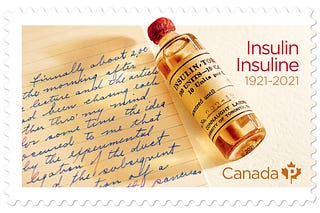 Finally about 2,00
the morning after
lecture and the article
been chasing each
thro' my mind
some time the idea
to me that
by the experimental
ligation of the duct
and the subsequent
tion of a
pancreas
INSULIN-TOR
UNITS
CONNAUGHT
Insulin
Insuline
1921-2021
Canada P